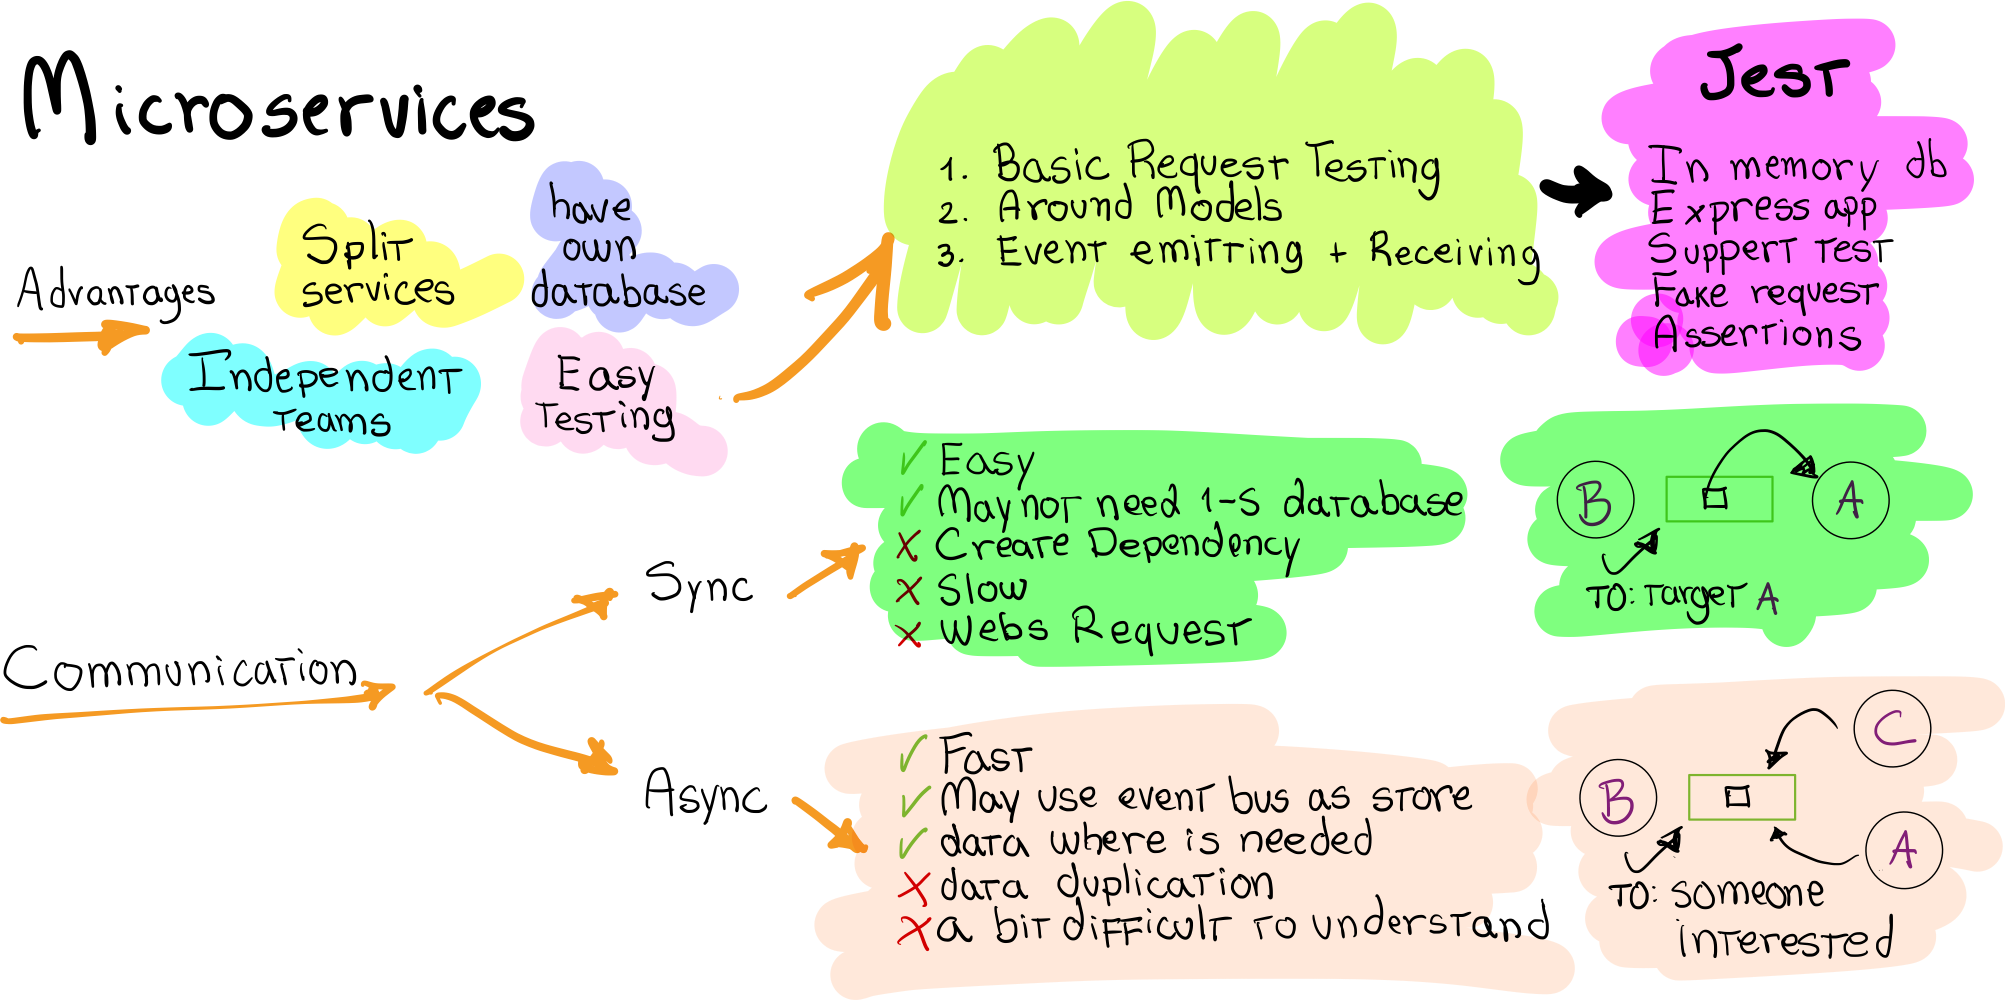 Microservices
Advantages
Split
services
have
own
database
Independent
teams
Easy
Testing
1. Basic Request Testing
2. Around Models
3. Event emitting + Receiving
Jest
In memory db
Express app
Suppert test
Fake request
Assertions
Communication
Sync
✓ Easy
✓ May not need 1-S database
✗ Create Dependency
✗ Slow
✗ Webs Request
B
A
TO: Target A
Async
✓ Fast
✓ May use event bus as store
✓ data where is needed
✗ data duplication
✗ a bit difficult to understand
C
B
A
TO: someone
interested